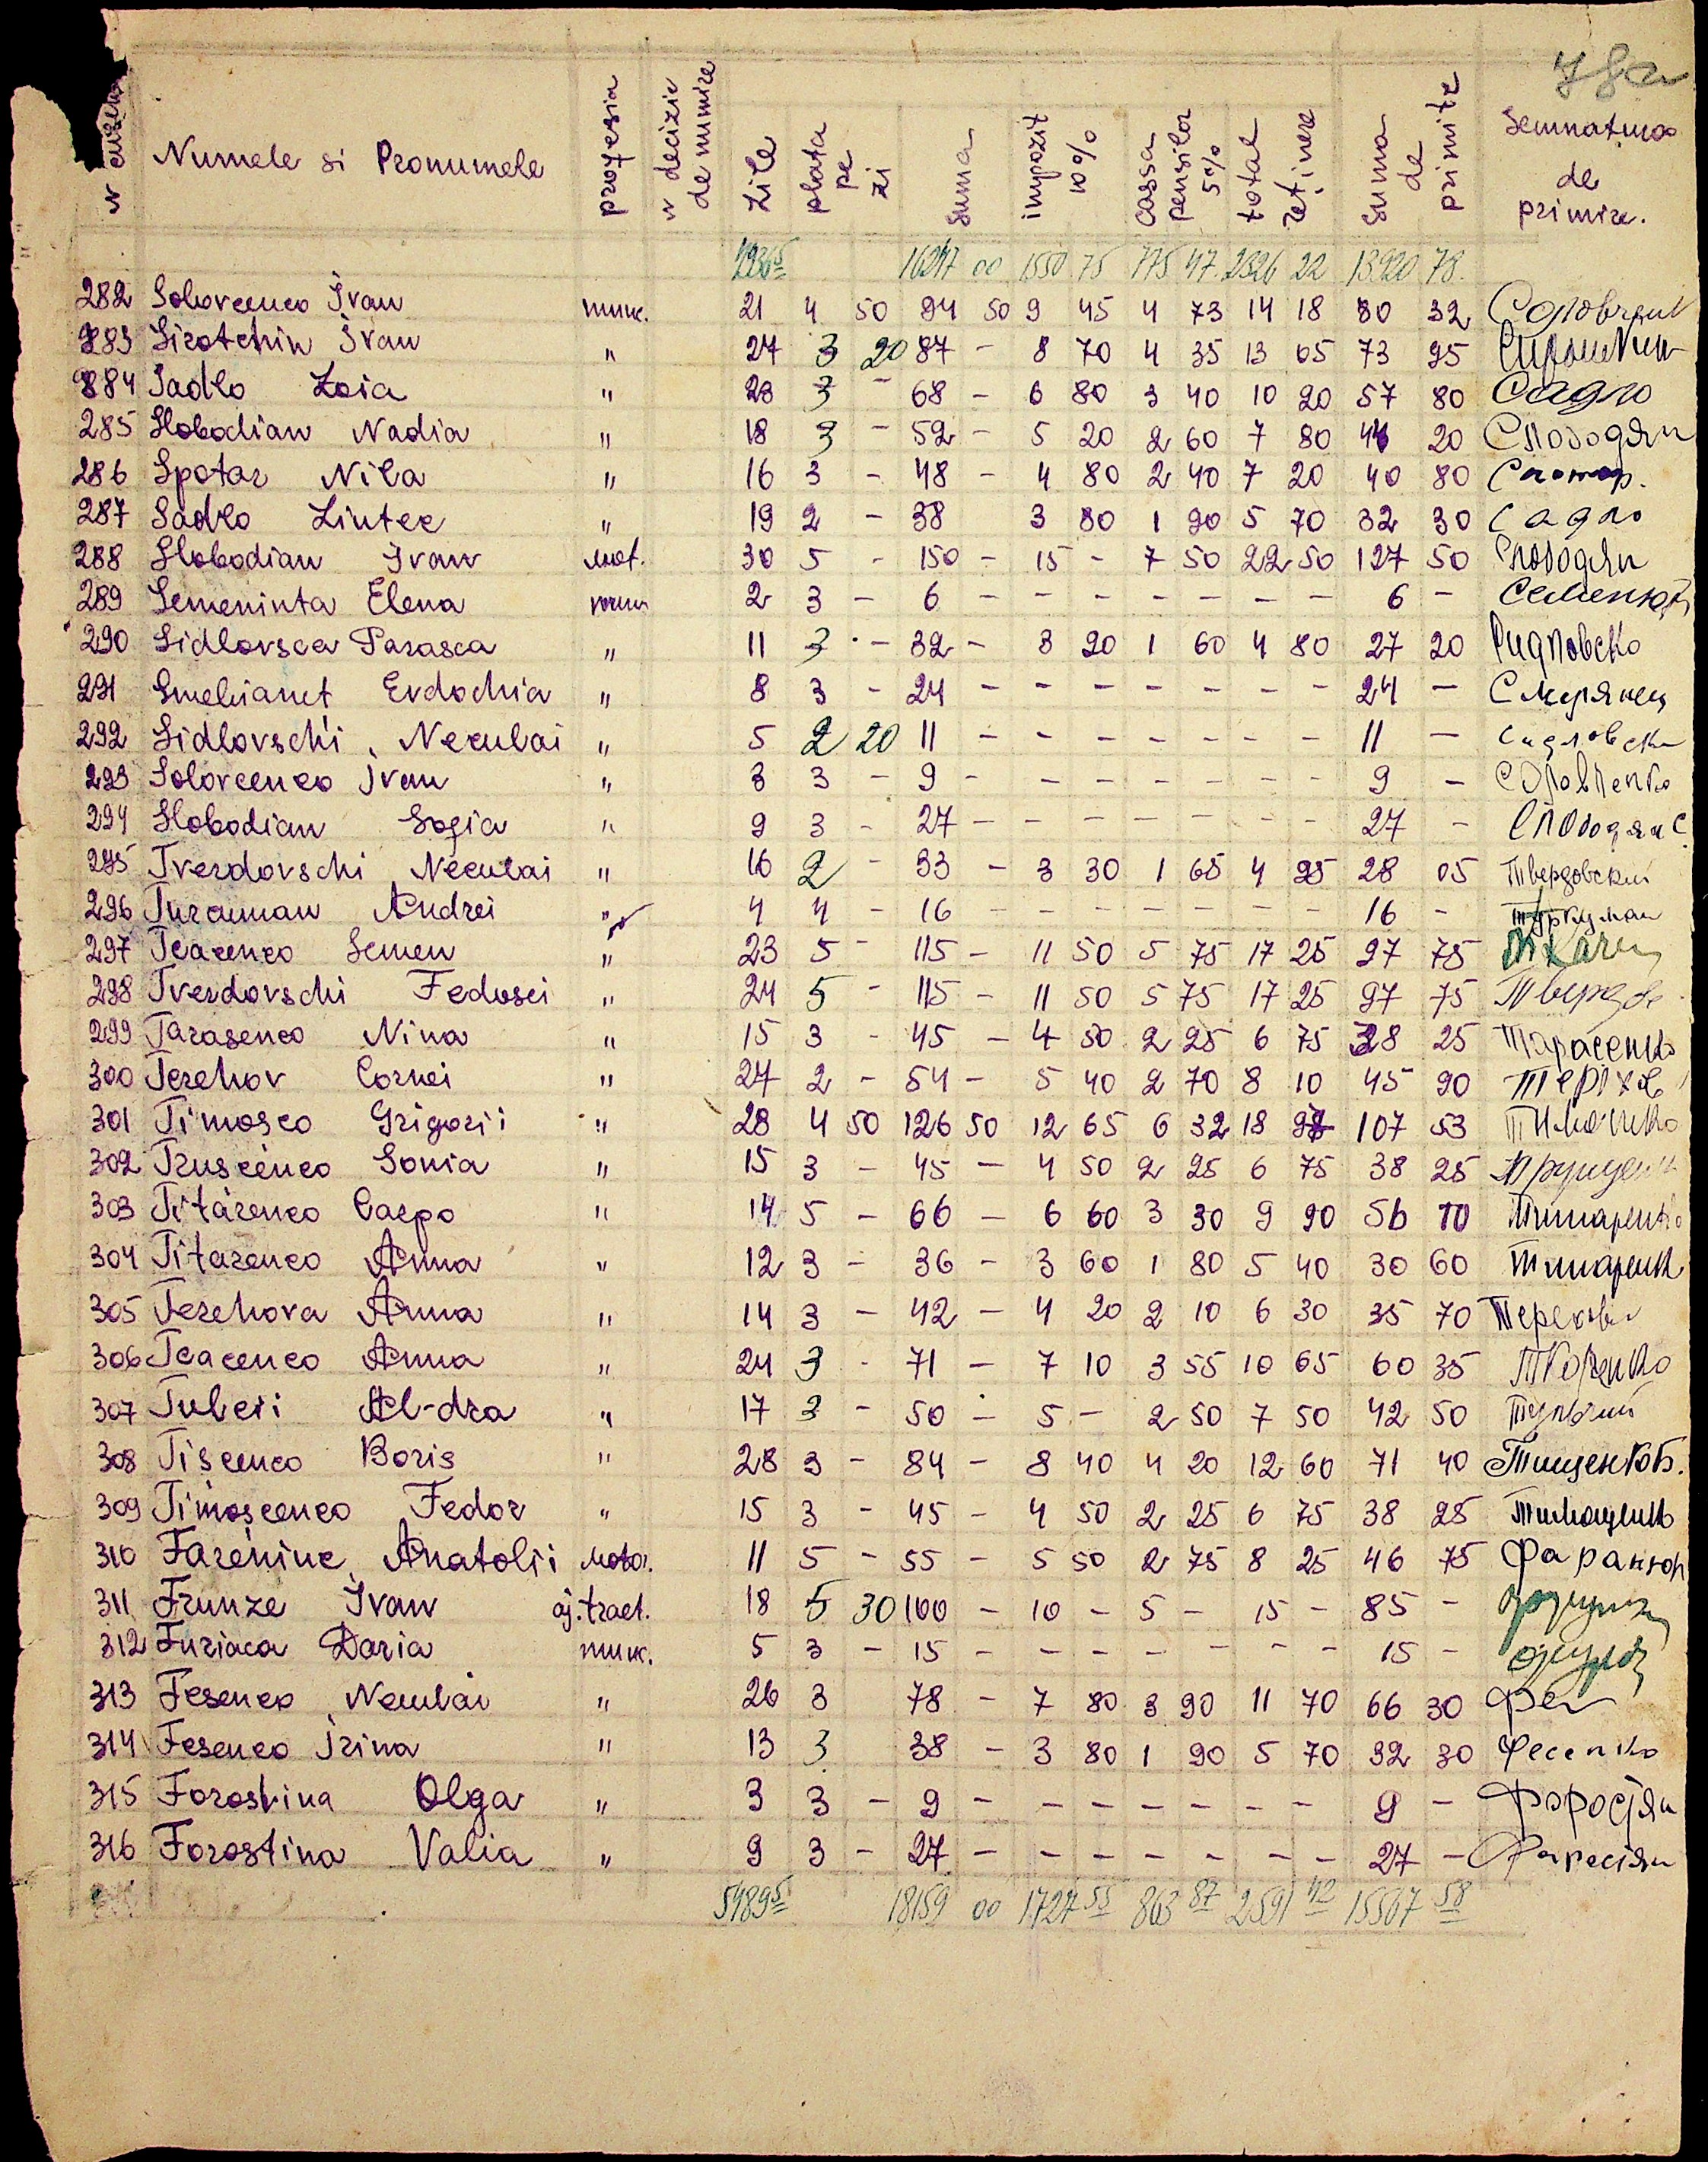 78a
Numele si Pronumele profesia nr decizie de numire zile plata pe zi suma impozit 10% cassa pensilor 5% total reținere suma de primite Semnatura de primire.
16247 00 1550 75 775 47 2326 22 13920 78
282 Solovcenco Ivan munc. 21 4 50 94 50 9 45 4 73 14 18 80 32
283 Sirotchin Ivan " 27 3 20 87 - 8 70 4 35 13 05 73 95
284 Sadlo Zoia " 23 3 - 68 - 6 80 3 40 10 20 57 80 Садло
285 Slobodian Nadia " 18 3 - 52 - 5 20 2 60 7 80 44 20 Слободян
286 Spotar Nila " 16 3 - 48 - 4 80 2 40 7 20 40 80 Спотар.
287 Sadlo Lintee " 19 2 - 38 3 80 1 90 5 70 32 30 Садло
288 Slobodian Ivan mot. 30 5 - 150 - 15 - 7 50 22 50 127 50 Слободян
289 Semeninta Elena 2 3 - 6 - - - - - - - 6 -
290 Sidlovsca Parasca " 11 3 - 32 - 3 20 1 60 4 80 27 20
291 Smelianet Evdochia " 8 3 - 24 - - - - - - - 24 -
292 Sidlovschi Neculai " 5 2 20 11 - - - - - - - 11 -
293 Solovcenco Ivan " 3 3 - 9 - - - - - - - 9 -
294 Slobodian Sofia " 9 3 - 27 - - - - - - - 27 - Слободян С.
295 Tverdovschi Neculai " 16 2 - 33 - 3 30 1 65 4 95 28 05 Твердовский
296 Turcuman Andrei " 4 4 - 16 - - - - - - - 16 - Туркуман
297 Tcacenco Semen " 23 5 - 115 - 11 50 5 75 17 25 97 75
298 Tverdovschi Fedosei " 24 5 - 115 - 11 50 5 75 17 25 97 75
299 Tarasenco Nina " 15 3 - 45 - 4 50 2 25 6 75 38 25 Тарасенко
300 Terehov Cornei " 27 2 - 54 - 5 40 2 70 8 10 45 90
301 Timosco Grigorii " 28 4 50 126 50 12 65 6 32 18 97 107 53
302 Truscenco Sonia " 15 3 - 45 - 4 50 2 25 6 75 38 25
303 Titarenco Carpo " 14 5 - 66 - 6 60 3 30 9 90 56 10 Титаренко
304 Titarenco Anna " 12 3 - 36 - 3 60 1 80 5 40 30 60
305 Terehova Anna " 14 3 - 42 - 4 20 2 10 6 30 35 70
306 Tcacenco Anna " 24 3 - 71 - 7 10 3 55 10 65 60 35
307 Tulcii Al-dra " 17 3 - 50 - 5 - 2 50 7 50 42 50
308 Tiscenco Boris " 28 3 - 84 - 8 40 4 20 12 60 71 40 Тищенко Б.
309 Timoscenco Fedor " 15 3 - 45 - 4 50 2 25 6 75 38 25
310 Fareniuc Anatolii motor. 11 5 - 55 - 5 50 2 75 8 25 46 75
311 Frunze Ivan aj. tract. 18 5 30 100 - 10 - 5 - 15 - 85 -
312 Furiaca Daria munc. 5 3 - 15 - - - - - - - 15 -
313 Fesenco Neculai " 26 3 78 - 7 80 3 90 11 70 66 30 Фес
314 Fesenco Irina " 13 3 38 - 3 80 1 90 5 70 32 30 Фесенко
315 Forostina Olga " 3 3 - 9 - - - - - - - 9 -
316 Forostina Valia " 9 3 - 27 - - - - - - - 27 -
5489 5 18159 00 1727 55 863 87 2591 42 15567 58